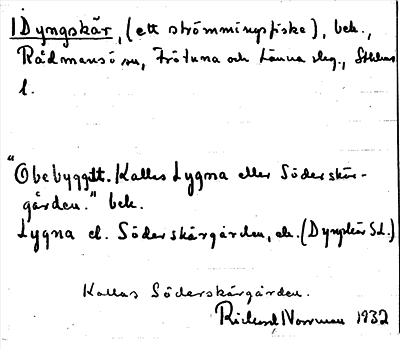 Dyngskär, (ett strömmingsfiske), bek.,
Rådmansö sn, Frötuna och Länna slg., Sthlms
l.
"Obebyggt. Kallas Lygna eller Söderskär-
gården." bek.
Lygna el. Söderskärgården, ek. (Dyngskär S d.)
Kallas Söderskärgården.
Rickard Norrman 1932